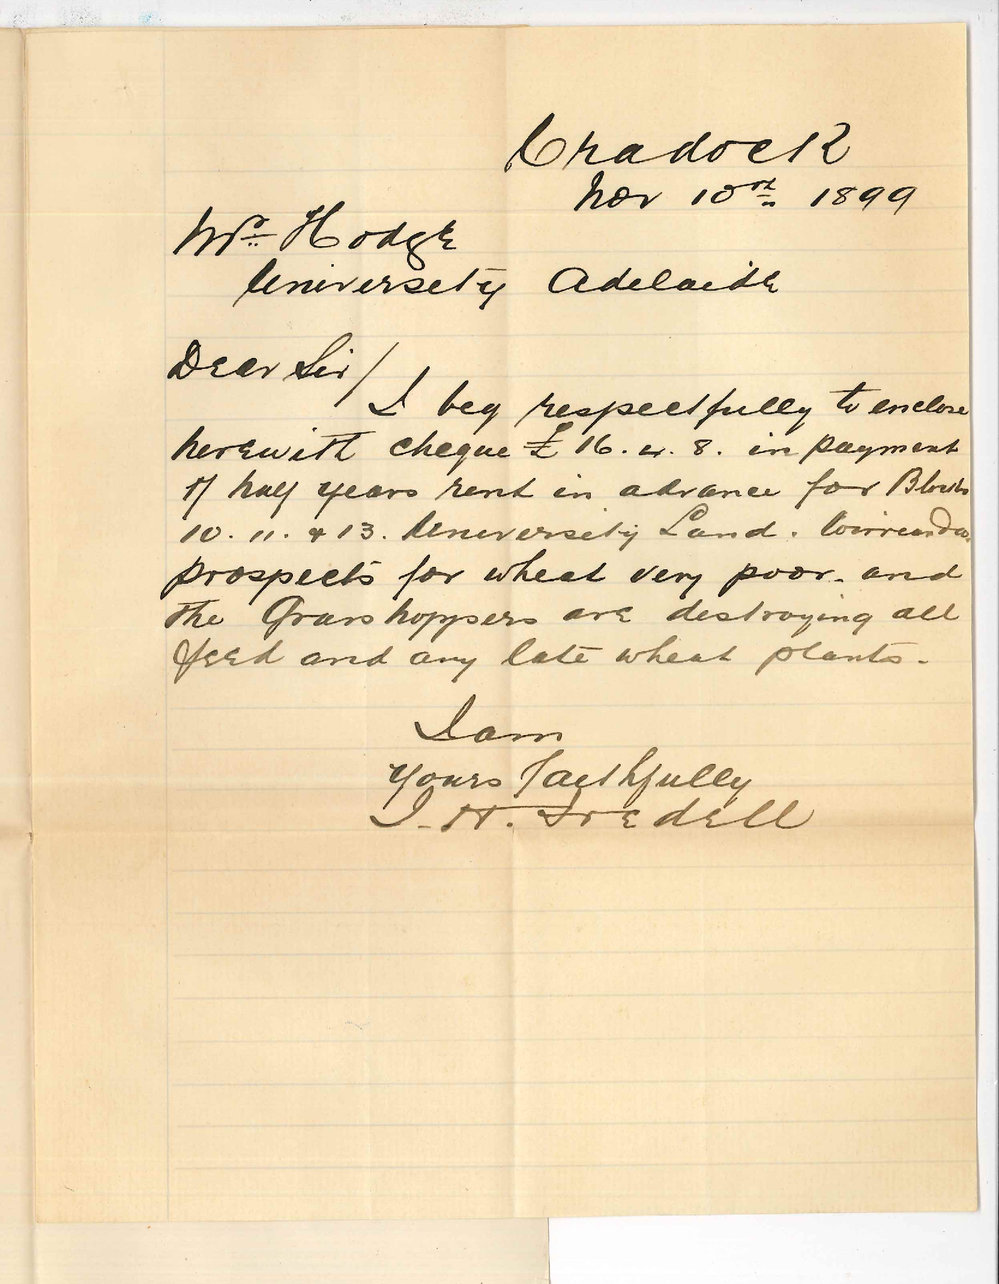 Cradock
Nov 10rd 1899
Mr Hodge
University Adelaide
Dear Sir/
I beg respectfully to enclose
herewith cheque £16. 4. 8. in payment
of half years rent in advance for Blocks
10. 11. & 13. University Land. Wirreanda
prospects for wheat very poor. and
the Grasshoppers are destroying all
feed and any late wheat plants.
I am
Yours faithfully
J. H. Iredell